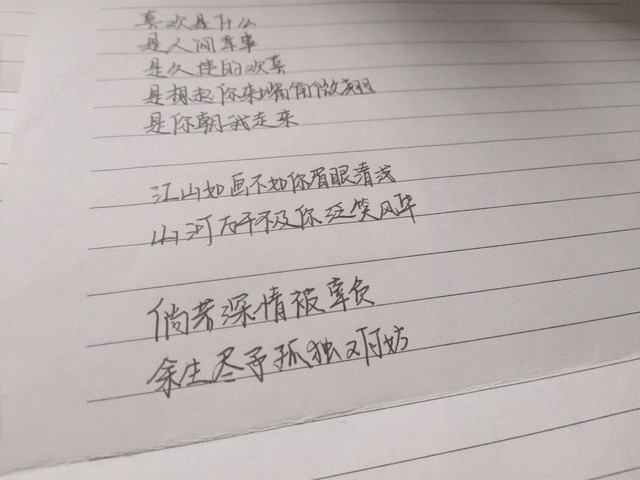 喜欢是什么
是人间幸事
是久违的欢喜
是想起你来嘴角微翘
是你朝我走来
江山如画不如你眉眼清浅
山河万千不及你泛笑风华
倘若深情被辜负
余生尽予孤独又何妨